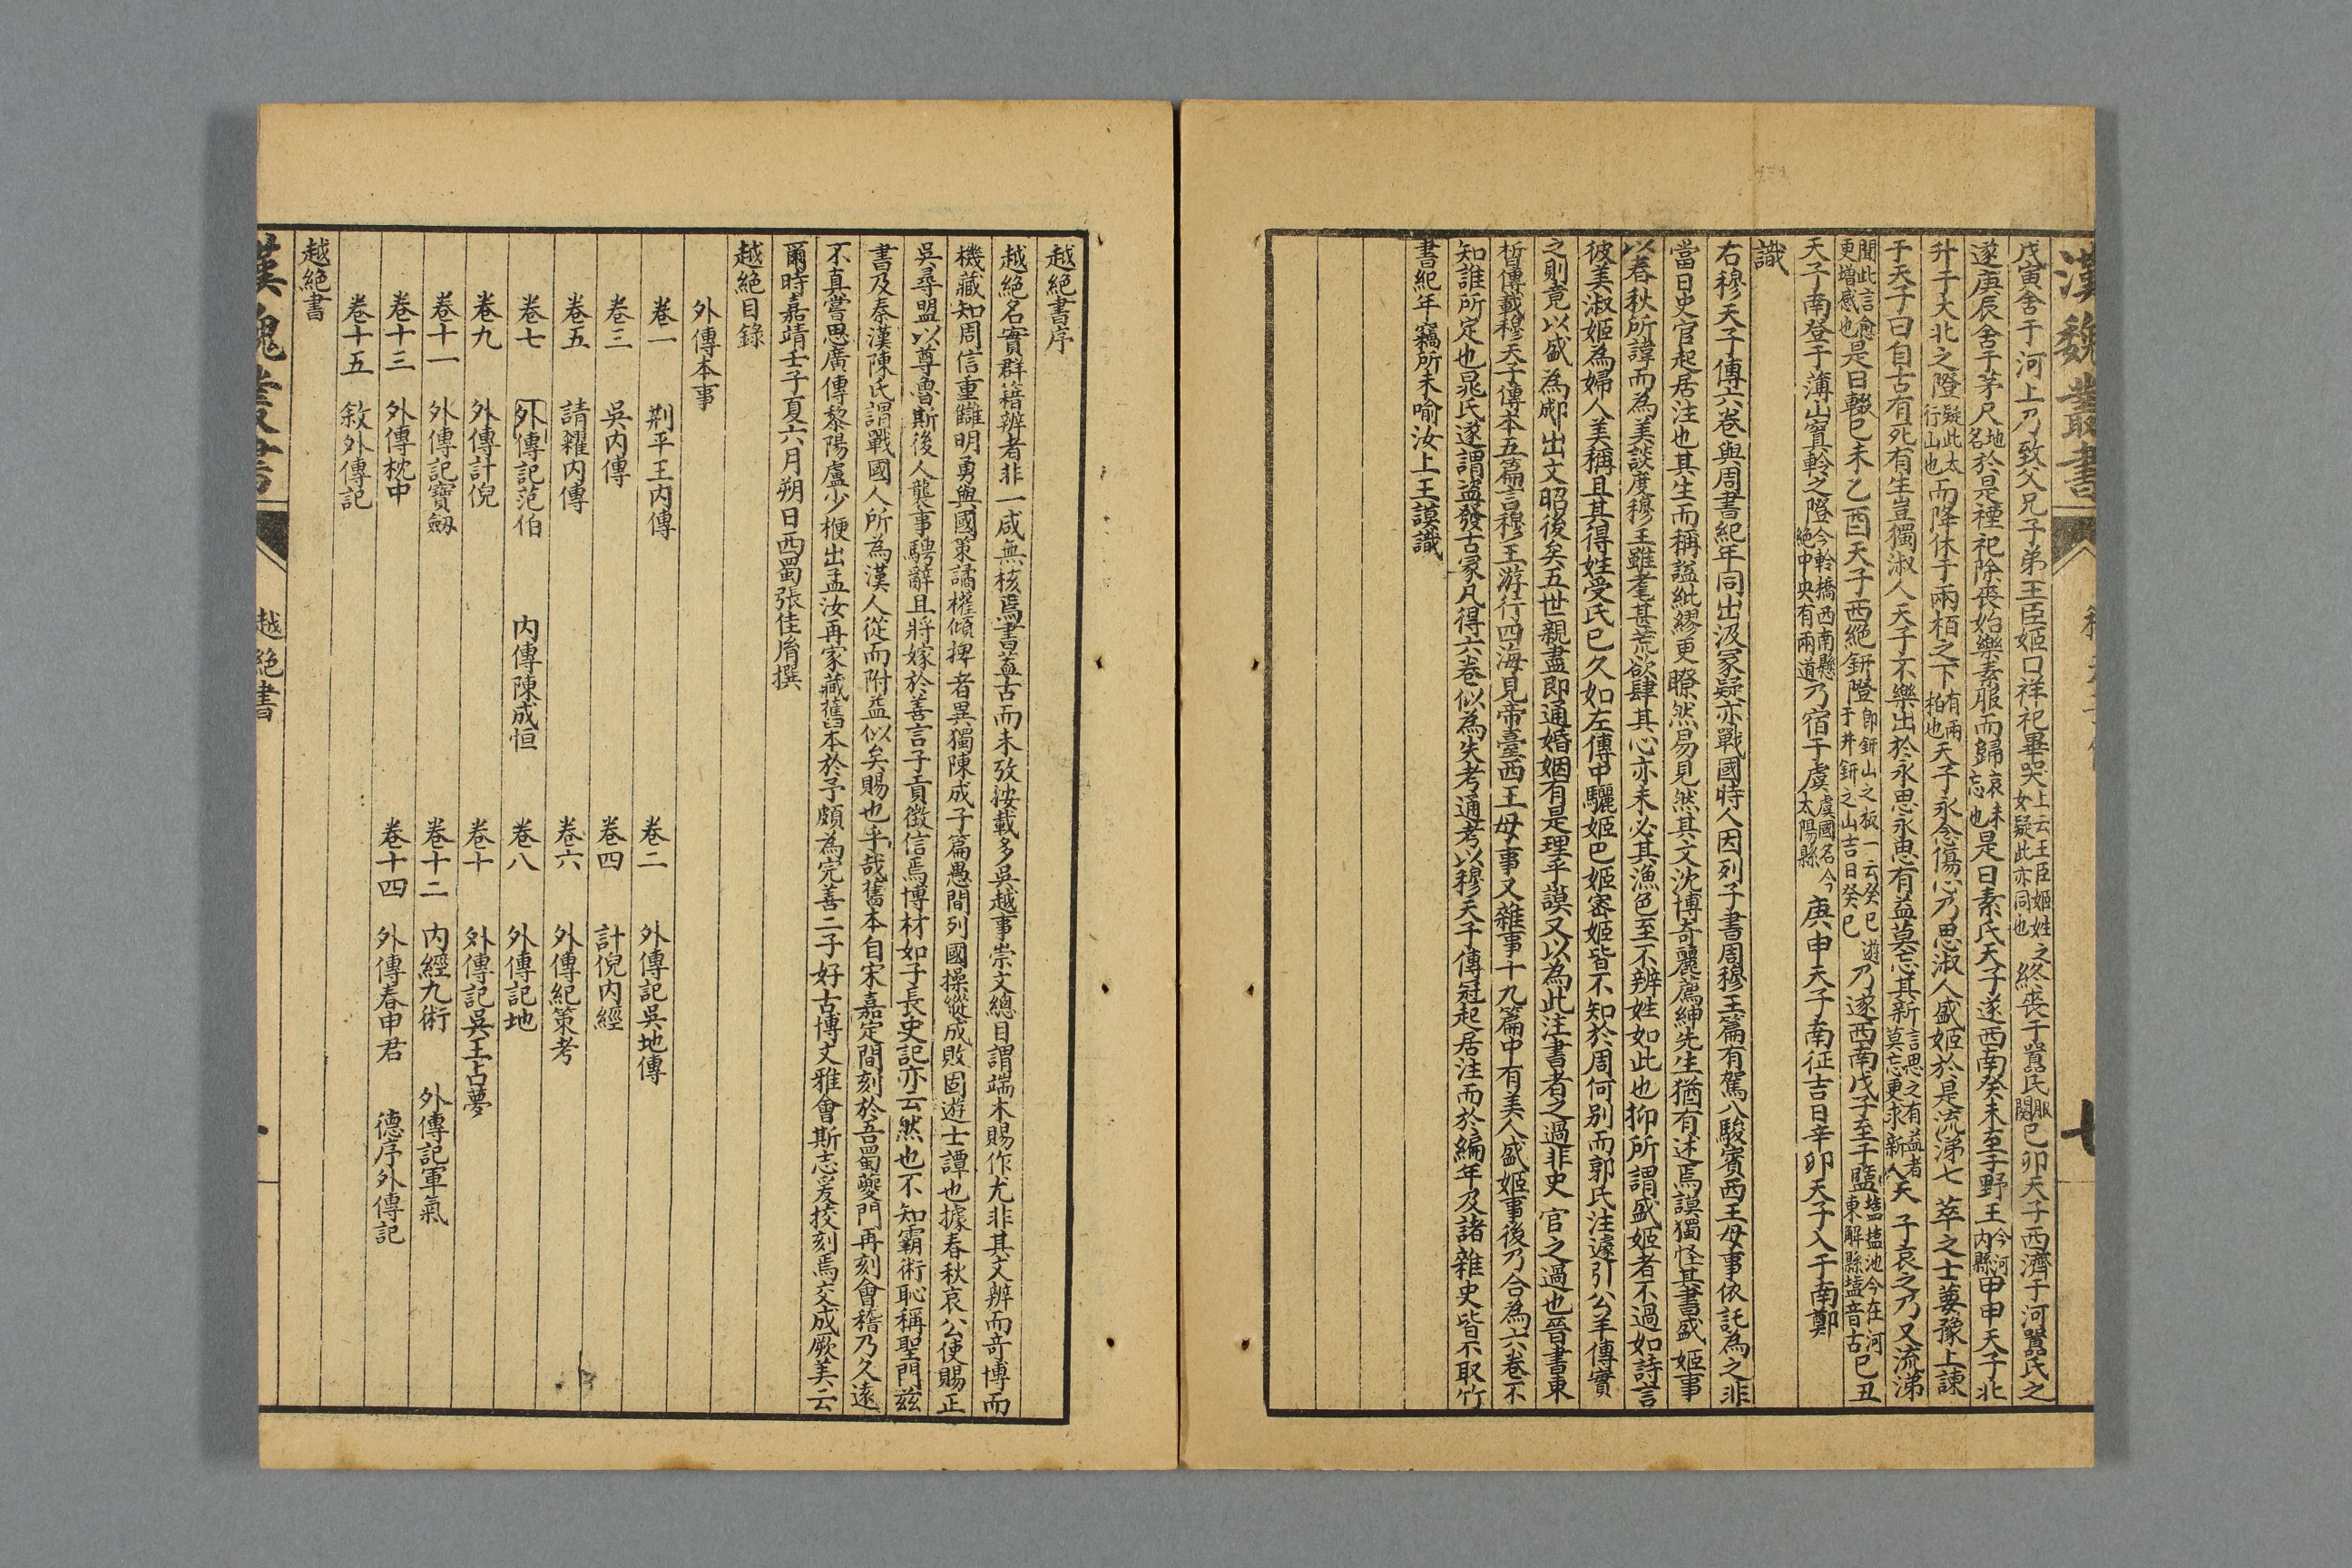 漢魏叢書
戊寅舍于河上乃致父兄子弟王臣姬口祥祀畢哭上云王臣姬姓女疑此亦同也之終喪于嚻氏服闋己卯天子西濟于河嚻氏之
遂庚辰舍于茅尺地名於是禋祀除喪始樂素服而歸哀未忘也是日素氏天子遂西南癸未至于野王今河内縣甲申天子北
升于大北之隥疑此太行山也而降休于兩栢之下有兩栢也天子永念傷心乃思淑人盛姬於是流涕七萃之士葽豫上諫
于天子曰自古有死有生豈獨淑人天子不樂出於永思永思有益莫忘其新言思之有益者莫忘更求新人天子哀之乃又流涕
聞此言愈更增感也是日輟己未乙酉天子西絶鈃隥即鈃山之坂一云癸巳遊于井鈃之山吉日癸巳乃遂西南戊子至于盬盬盬池今在河東解縣盬音古己丑
天子南登于薄山窴軨之隥今軨橋西南懸絶中央有兩道乃宿于虞虞國名今太陽縣庚申天子南征吉日辛卯天子入于南鄭
識
右穆天子傳六卷與周書紀年同出汲冢疑亦戰國時人因列子書周穆王篇有駕八駿賓西王母事依託為之非
當日史官起居注也其生而稱謚紕繆更瞭然易見然其文沈博奇麗薦紳先生猶有述焉謨獨怪其書盛姬事
以春秋所諱而為美談度穆王雖耄甚荒欲肆其心亦未必其漁色至不辨姓如此也抑所謂盛姬者不過如詩言
彼美淑姬為婦人美稱且其得姓受氏已久如左傳中驪姬巴姬密姬皆不知於周何别而郭氏注遽引公羊傳實
之則竟以盛為郕出文昭後矣五世親盡即通婚姻有是理乎謨又以為此注書者之過非史官之過也晉書束
晳傳載穆天子傳本五篇言穆王游行四海見帝臺西王母事又雜事十九篇中有美人盛姬事後乃合為六卷不
知誰所定也晁氏遂謂盗發古冢凡得六卷似為失考通考以穆天子傳冠起居注而於編年及諸雜史皆不取竹
書紀年竊所未喻汝上王謨識
越絶書序
越絶名實群籍辨者非一咸無核焉書蓋古而未攷按載多吳越事崇文總目謂端木賜作尤非其文辨而竒博而
機藏知周信重讎明勇與國策譎權傾捭者異獨陳成子篇愚間列國操縱成敗固遊士譚也據春秋哀公使賜正
吳尋盟以尊魯斯後人襲事騁辭且將嫁於善言子貢徵信焉博材如子長史記亦云然也不知霸術恥稱聖門兹
書及秦漢陳氏謂戰國人所為漢人從而附益似矣賜也乎哉舊本自宋嘉定間刻於吾蜀夔門再刻會稽乃久遠
不真嘗思廣傳黎陽盧少楩出孟汝再家藏舊本於予頗為完善二子好古博文雅會斯志爰挍刻焉交成厥美云
爾時嘉靖壬子夏六月朔日西蜀張佳胤撰
越絶目錄
外傳本事
卷一　荆平王内傳　卷二　外傳記吳地傳
卷三　吳内傳　卷四　計倪内經
卷五　請糴内傳　卷六　外傳紀策考
卷七　外傳記范伯　内傳陳成恒　卷八　外傳記地
卷九　外傳計倪　卷十　外傳記吳王占夢
卷十一　外傳記寶劔　卷十二　内經九術　外傳記軍氣
卷十三　外傳枕中　卷十四　外傳春申君　德序外傳記
卷十五　敘外傳記
越絶書
漢魏叢書　越絶書